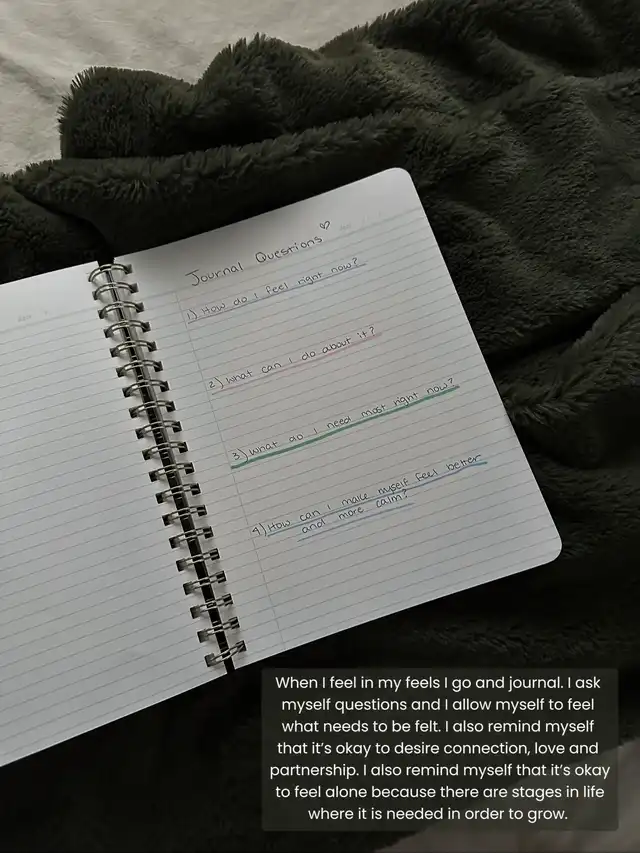 Journal Questions
1) How do I feel right now?
2) What can I do about it?
3) What do I need most right now?
4) How can I make myself feel better
and more calm?
When I feel in my feels I go and journal. I ask
myself questions and I allow myself to feel
what needs to be felt. I also remind myself
that it’s okay to desire connection, love and
partnership. I also remind myself that it’s okay
to feel alone because there are stages in life
where it is needed in order to grow.